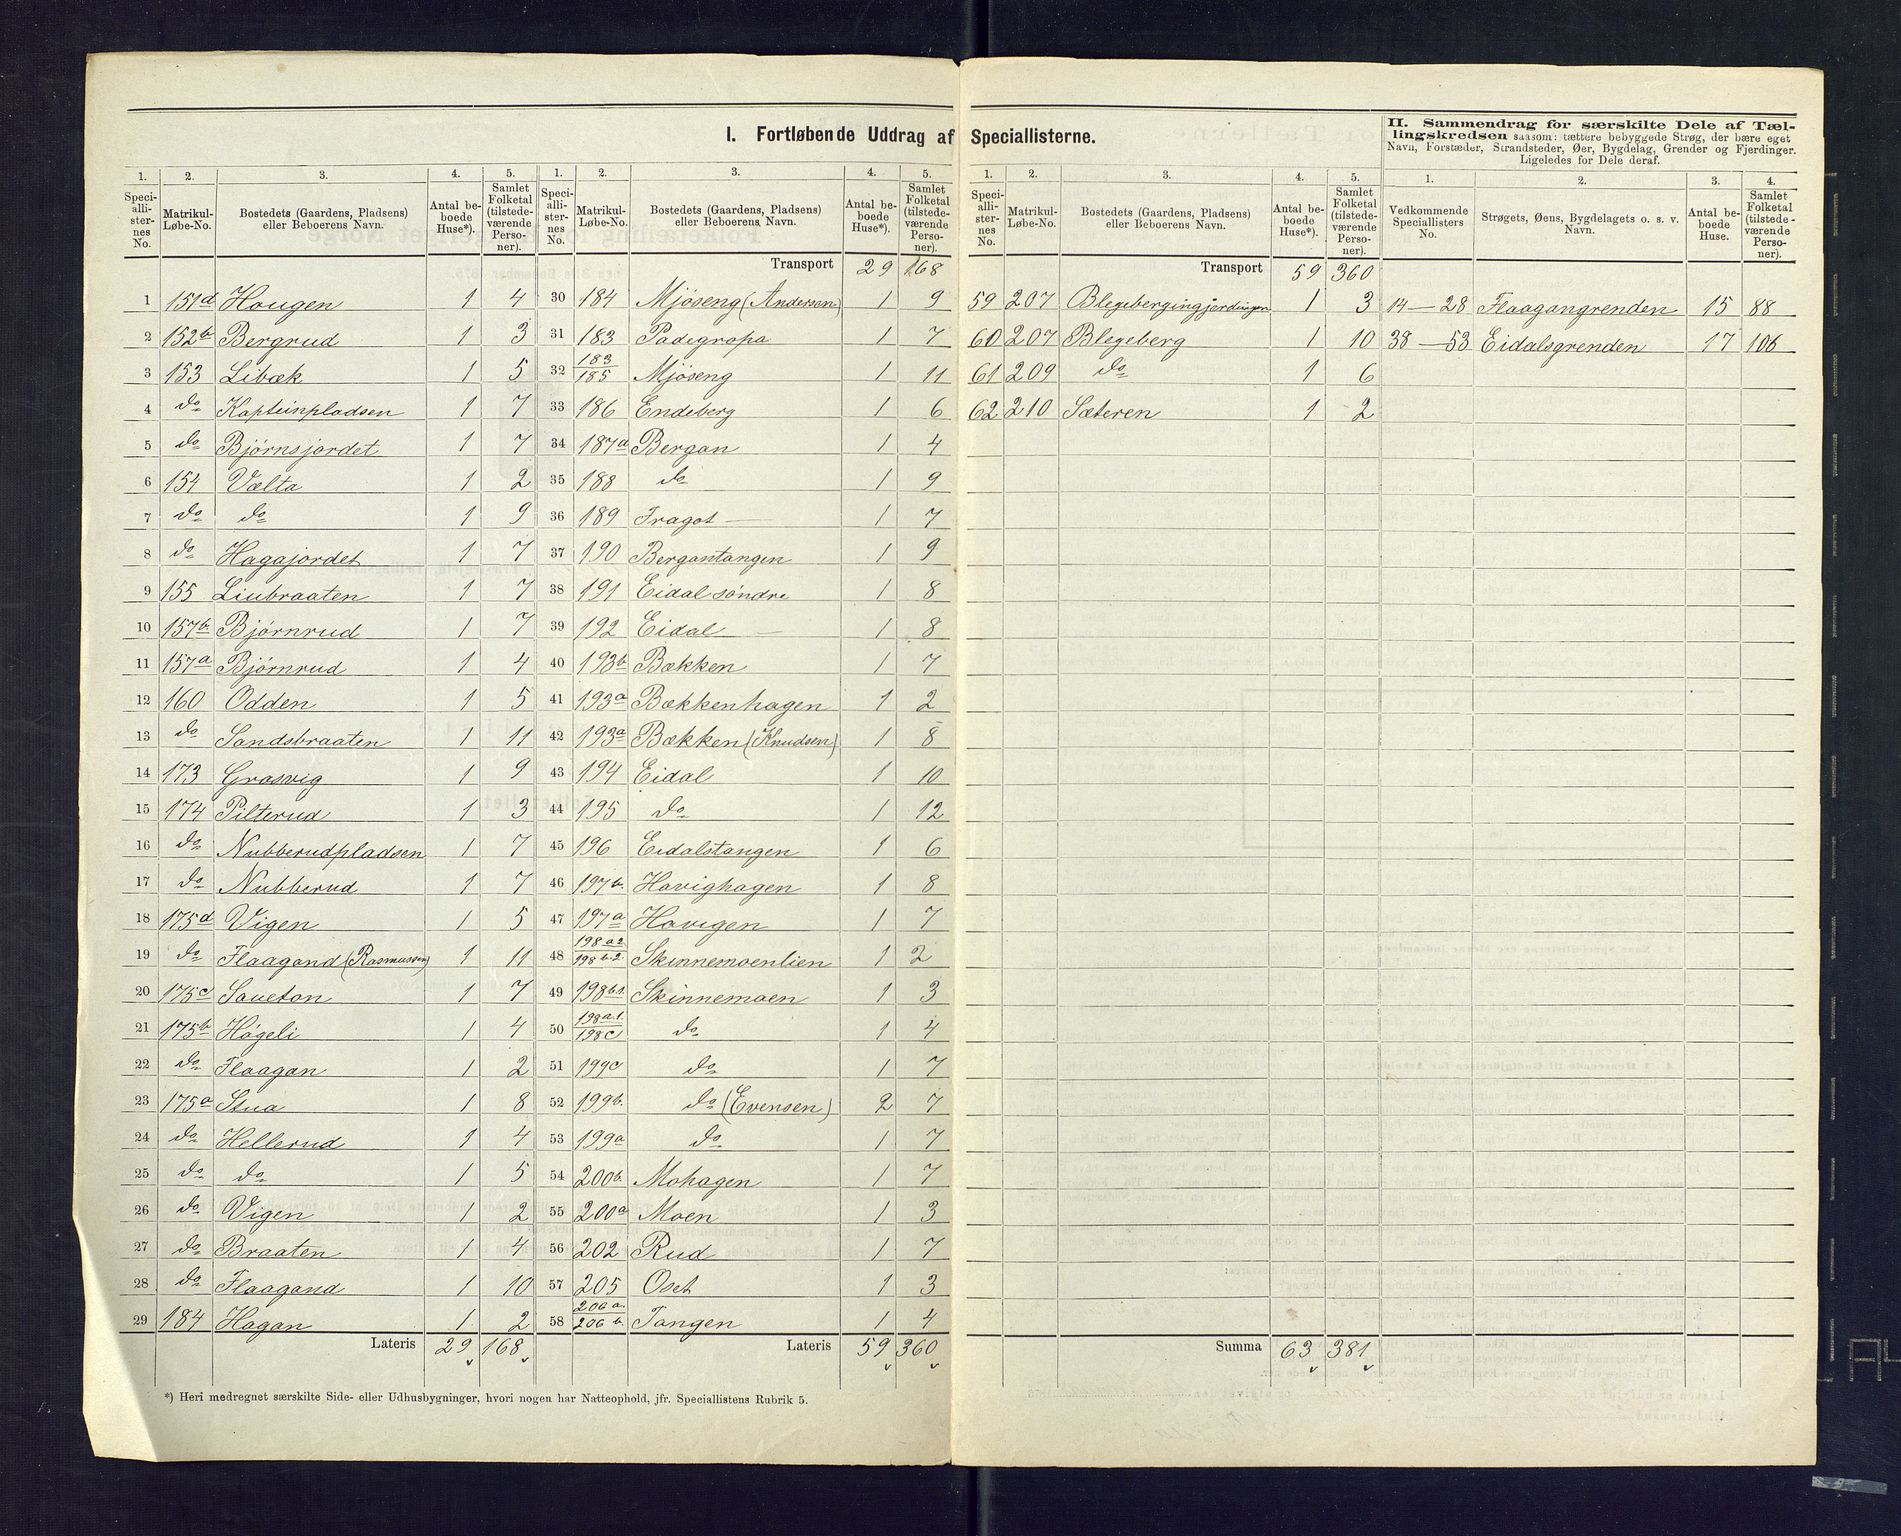 I. Fortløbende Uddrag af Speciallisterne.
II. Sammendrag for særskilte Dele af Tæl-
lingskredsen saasom: tættere bebyggede Strøg, der bære eget
Navn, Forstæder, Strandsteder, Øer, Bygdelag, Grender og Fjerdinger.
Ligeledes for Dele deraf.
1. 2. 3. 4. 5.
Speciallisternes No. Matrikul-Løbe-No. Bostedets (Gaardens, Pladsens) eller Beboerens Navn. Antal beboede Huse*). Samlet Folketal (tilstedeværende Personer).
1 151d Hougen 1 4
2 152b Bergrud 1 3
3 153 Libæk 1 5
4 do Kapteinpladsen 1 7
5 do Bjørnsjordet 1 7
6 154 Vælta 1 2
7 do do 1 9
8 do Hagajordet 1 7
9 155 Liubraaten 1 7
10 157b. Bjørnrud 1 7
11 157a Bjørnrud 1 4
12 160 Odden 1 5
13 do Sandsbraaten 1 11
14 173 Grasvig 1 9
15 174 Pilterud 1 3
16 do Nubberudpladsen 1 7
17 do Nubberud 1 7
18 175d Vigen 1 5
19 do Flaagand (Rasmussen) 1 11
20 175c Saueton 1 7
21 175b Høgeli 1 4
22 do Flaagan 1 2
23 175a Stua 1 8
24 do Hellerud 1 4
25 do do 1 5
26 do Vigen 1 2
27 do Braaten 1 4
28 do Flaagand 1 10
29 184 Hagan 1 2
Lateris 29 168
*) Heri medregnet særskilte Side- eller Udhusbygninger, hvori nogen har Natteophold, jfr. Speciallistens Rubrik 5.
1. 2. 3. 4. 5.
Speciallisternes No. Matrikul-Løbe-No. Bostedets (Gaardens, Pladsens) eller Beboerens Navn. Antal beboede Huse*). Samlet Folketal (tilstedeværende Personer).
Transport 29 168
30 184 Mjøseng (Andersen) 1 9
31 183 Padegropa 1 7
32 183/185 Mjøseng 1 11
33 186 Endeberg 1 6
34 187a Bergan 1 4
35 188 do 1 9
36 189 Fragot — 1 7
37 190 Bergantangen 1 9
38 191 Eidal søndre 1 8
39 192 Eidal — 1 8
40 193b Bækken 1 7
41 193a Bækkenhagen 1 2
42 193a Bækken (Knudsen) 1 8
43 194 Eidal 1 10
44 195 do 1 12
45 196 Eidalstangen 1 6
46 197b. Havighagen 1 8
47 197a Havigen 1 7
48 198a2/198b.2 Skinnemoenlien 1 2
49 198b.1. Skinnemoen 1 3
50 198a.1/198c do 1 4
51 199c do 1 7
52 199b. do (Evensen) 2 7
53 199a do 1 7
54 200b. Mohagen 1 7
55 200a Moen 1 3
56 202 Rud 1 7
57 205 Oset 1 3
58 206a./206b. Tangen 1 4
Lateris 59 360
1. 2. 3. 4. 5.
Speciallisternes No. Matrikul-Løbe-No. Bostedets (Gaardens, Pladsens) eller Beboerens Navn. Antal beboede Huse*). Samlet Folketal (tilstedeværende Personer).
Transport 59 360
59 207 1 3
60 207 Blegeberg 1 10
61 209 do 1 6
62 210 Sæteren 1 2
Summa 63 381
1. 2. 3. 4.
Vedkommende Speciallisters No. Strøgets, Øens, Bygdelagets o. s. v. Navn. Antal beboede Huse. Samlet Folketal (tilstedeværende Personer).
14 — 28 Flaagangrenden 15 88
38 — 53 Eidalsgrenden 17 106